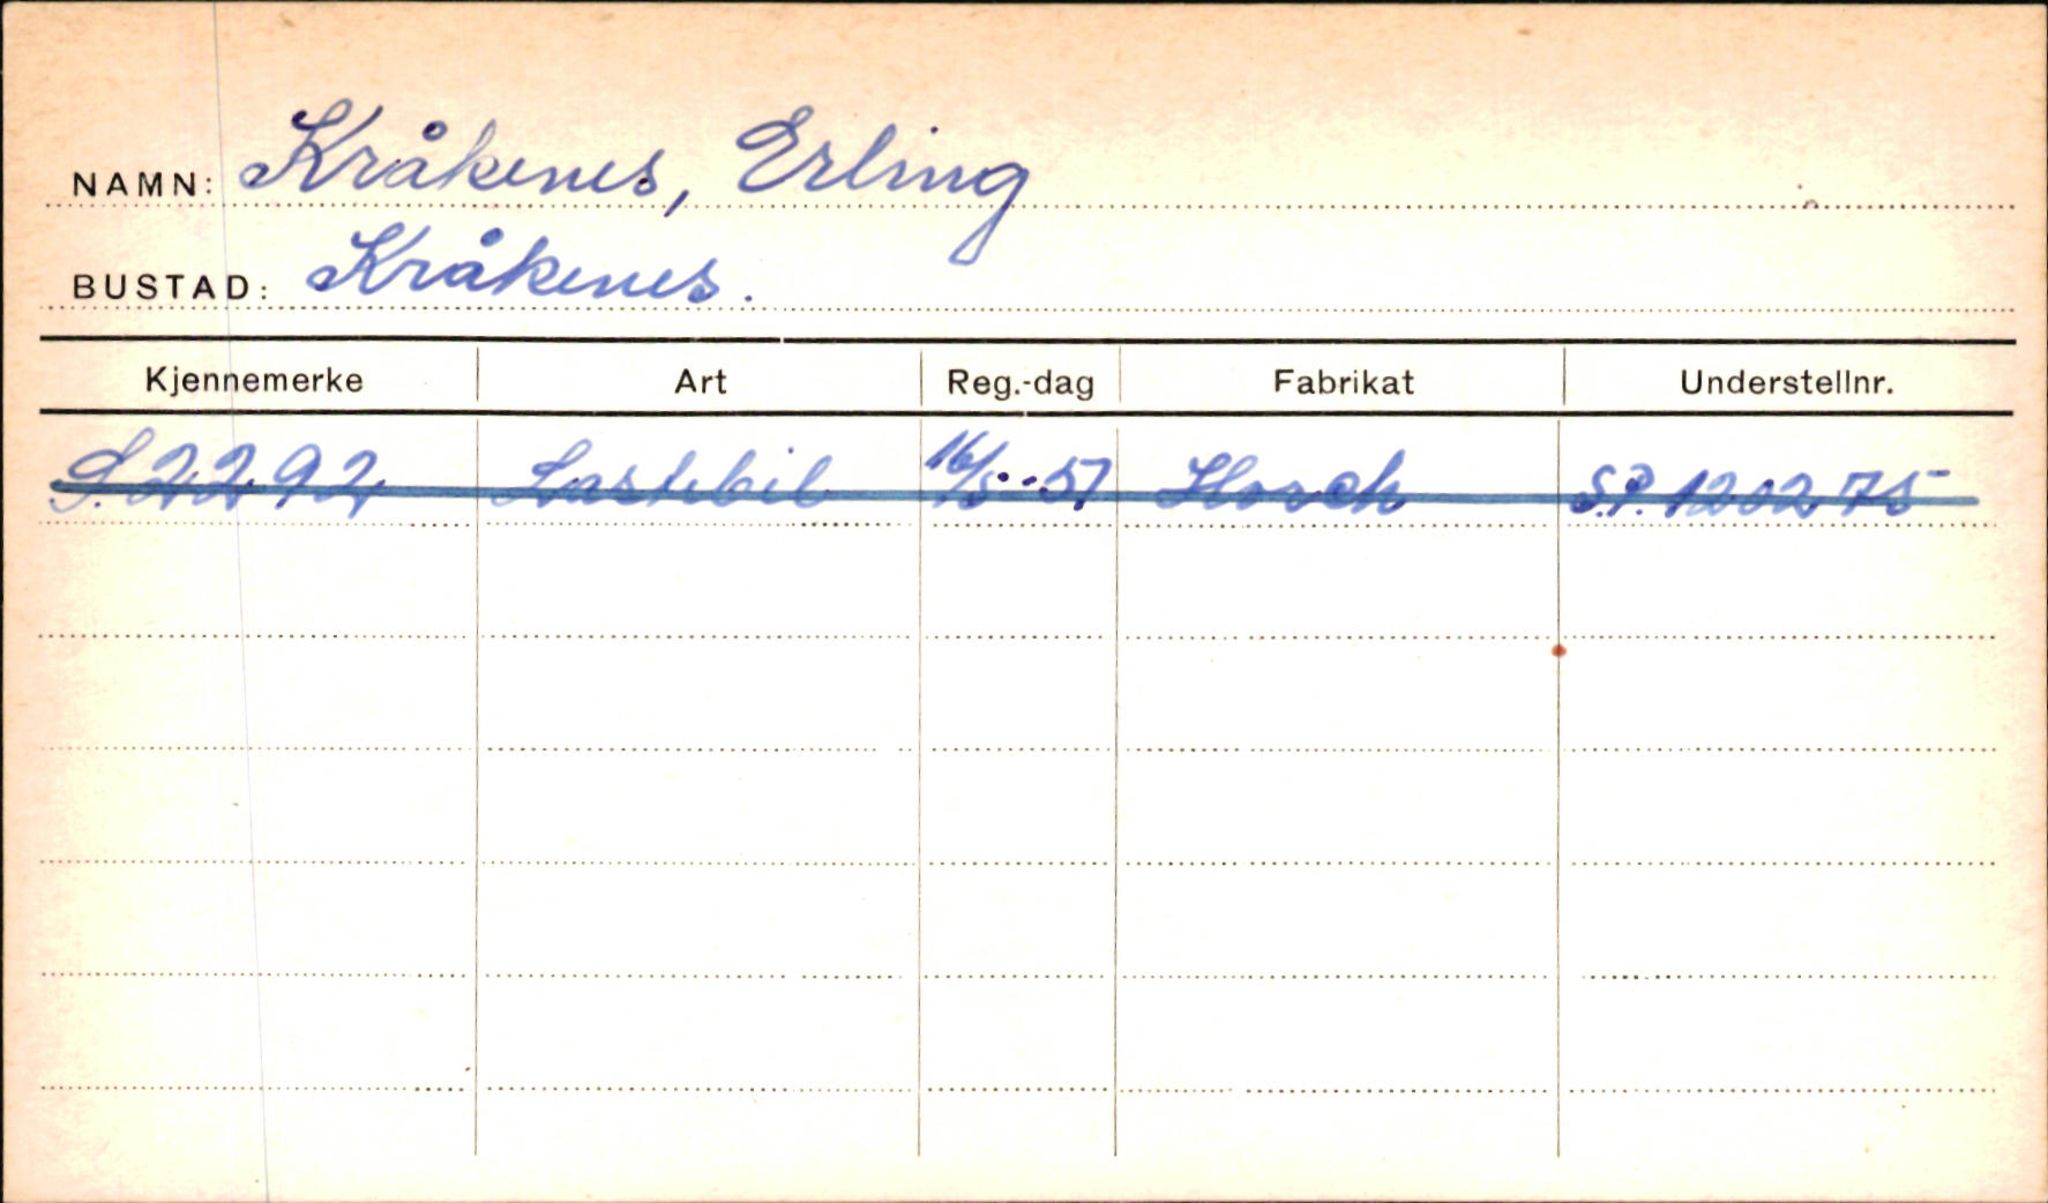 NAMN: Kråkenes, Erling
BUSTAD: Kråkenes.
Kjennemerke Art Reg.-dag Fabrikat Understellnr.
S.2292 Lastebil 16/5-57 Horch S.P. 1202 75